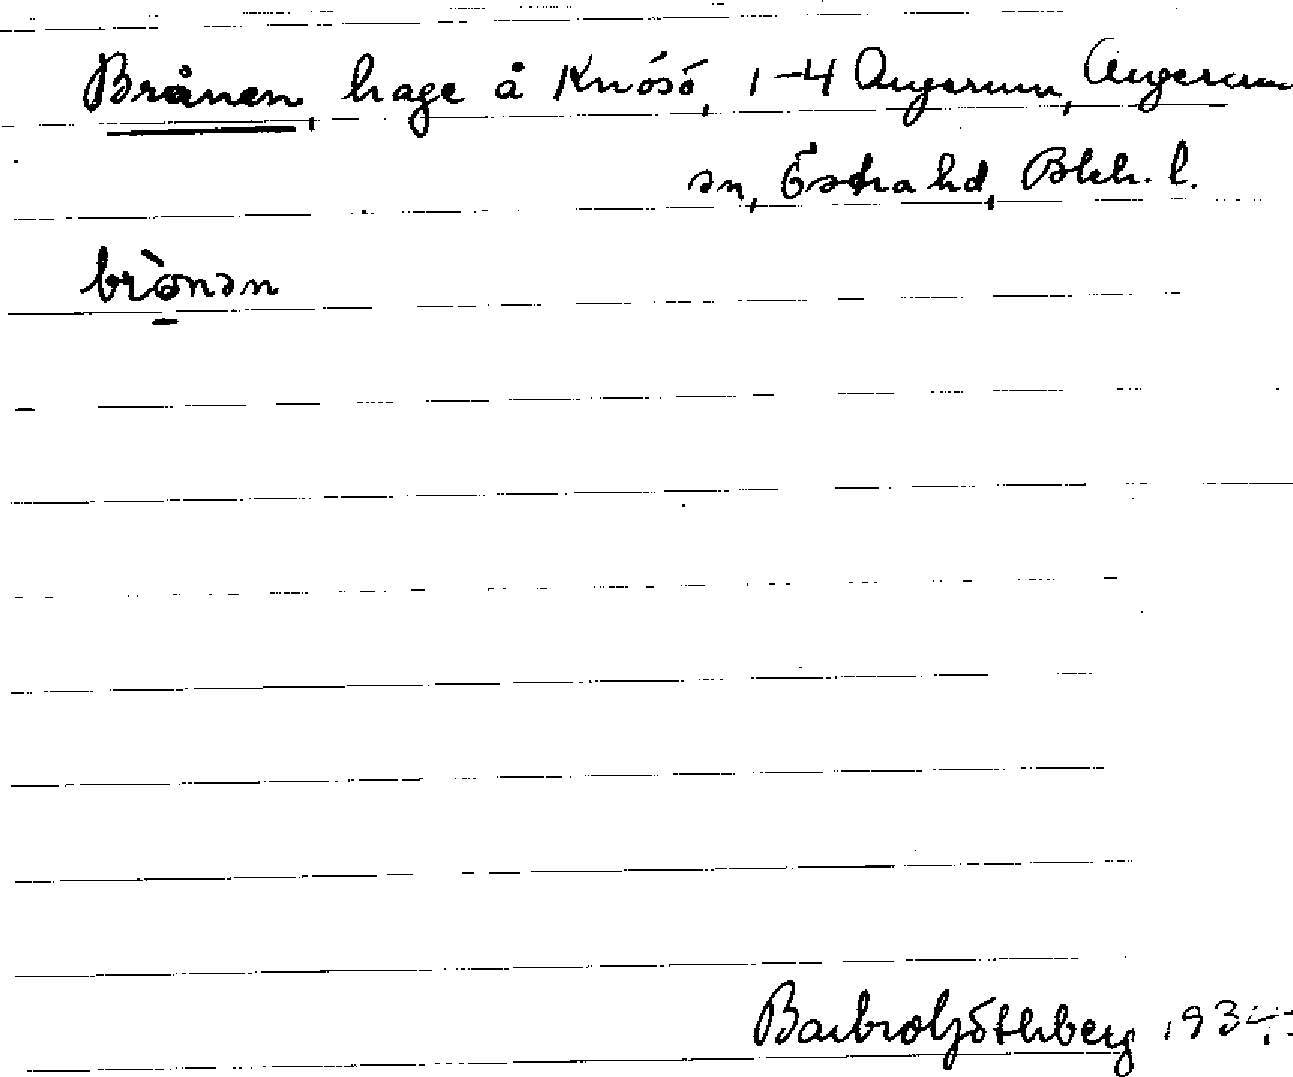 Brånen, hage å Knösö, 1-4 Augerum, Augerum
sn, Östra hd, Blek. l.
brònən
Barbro Göthberg